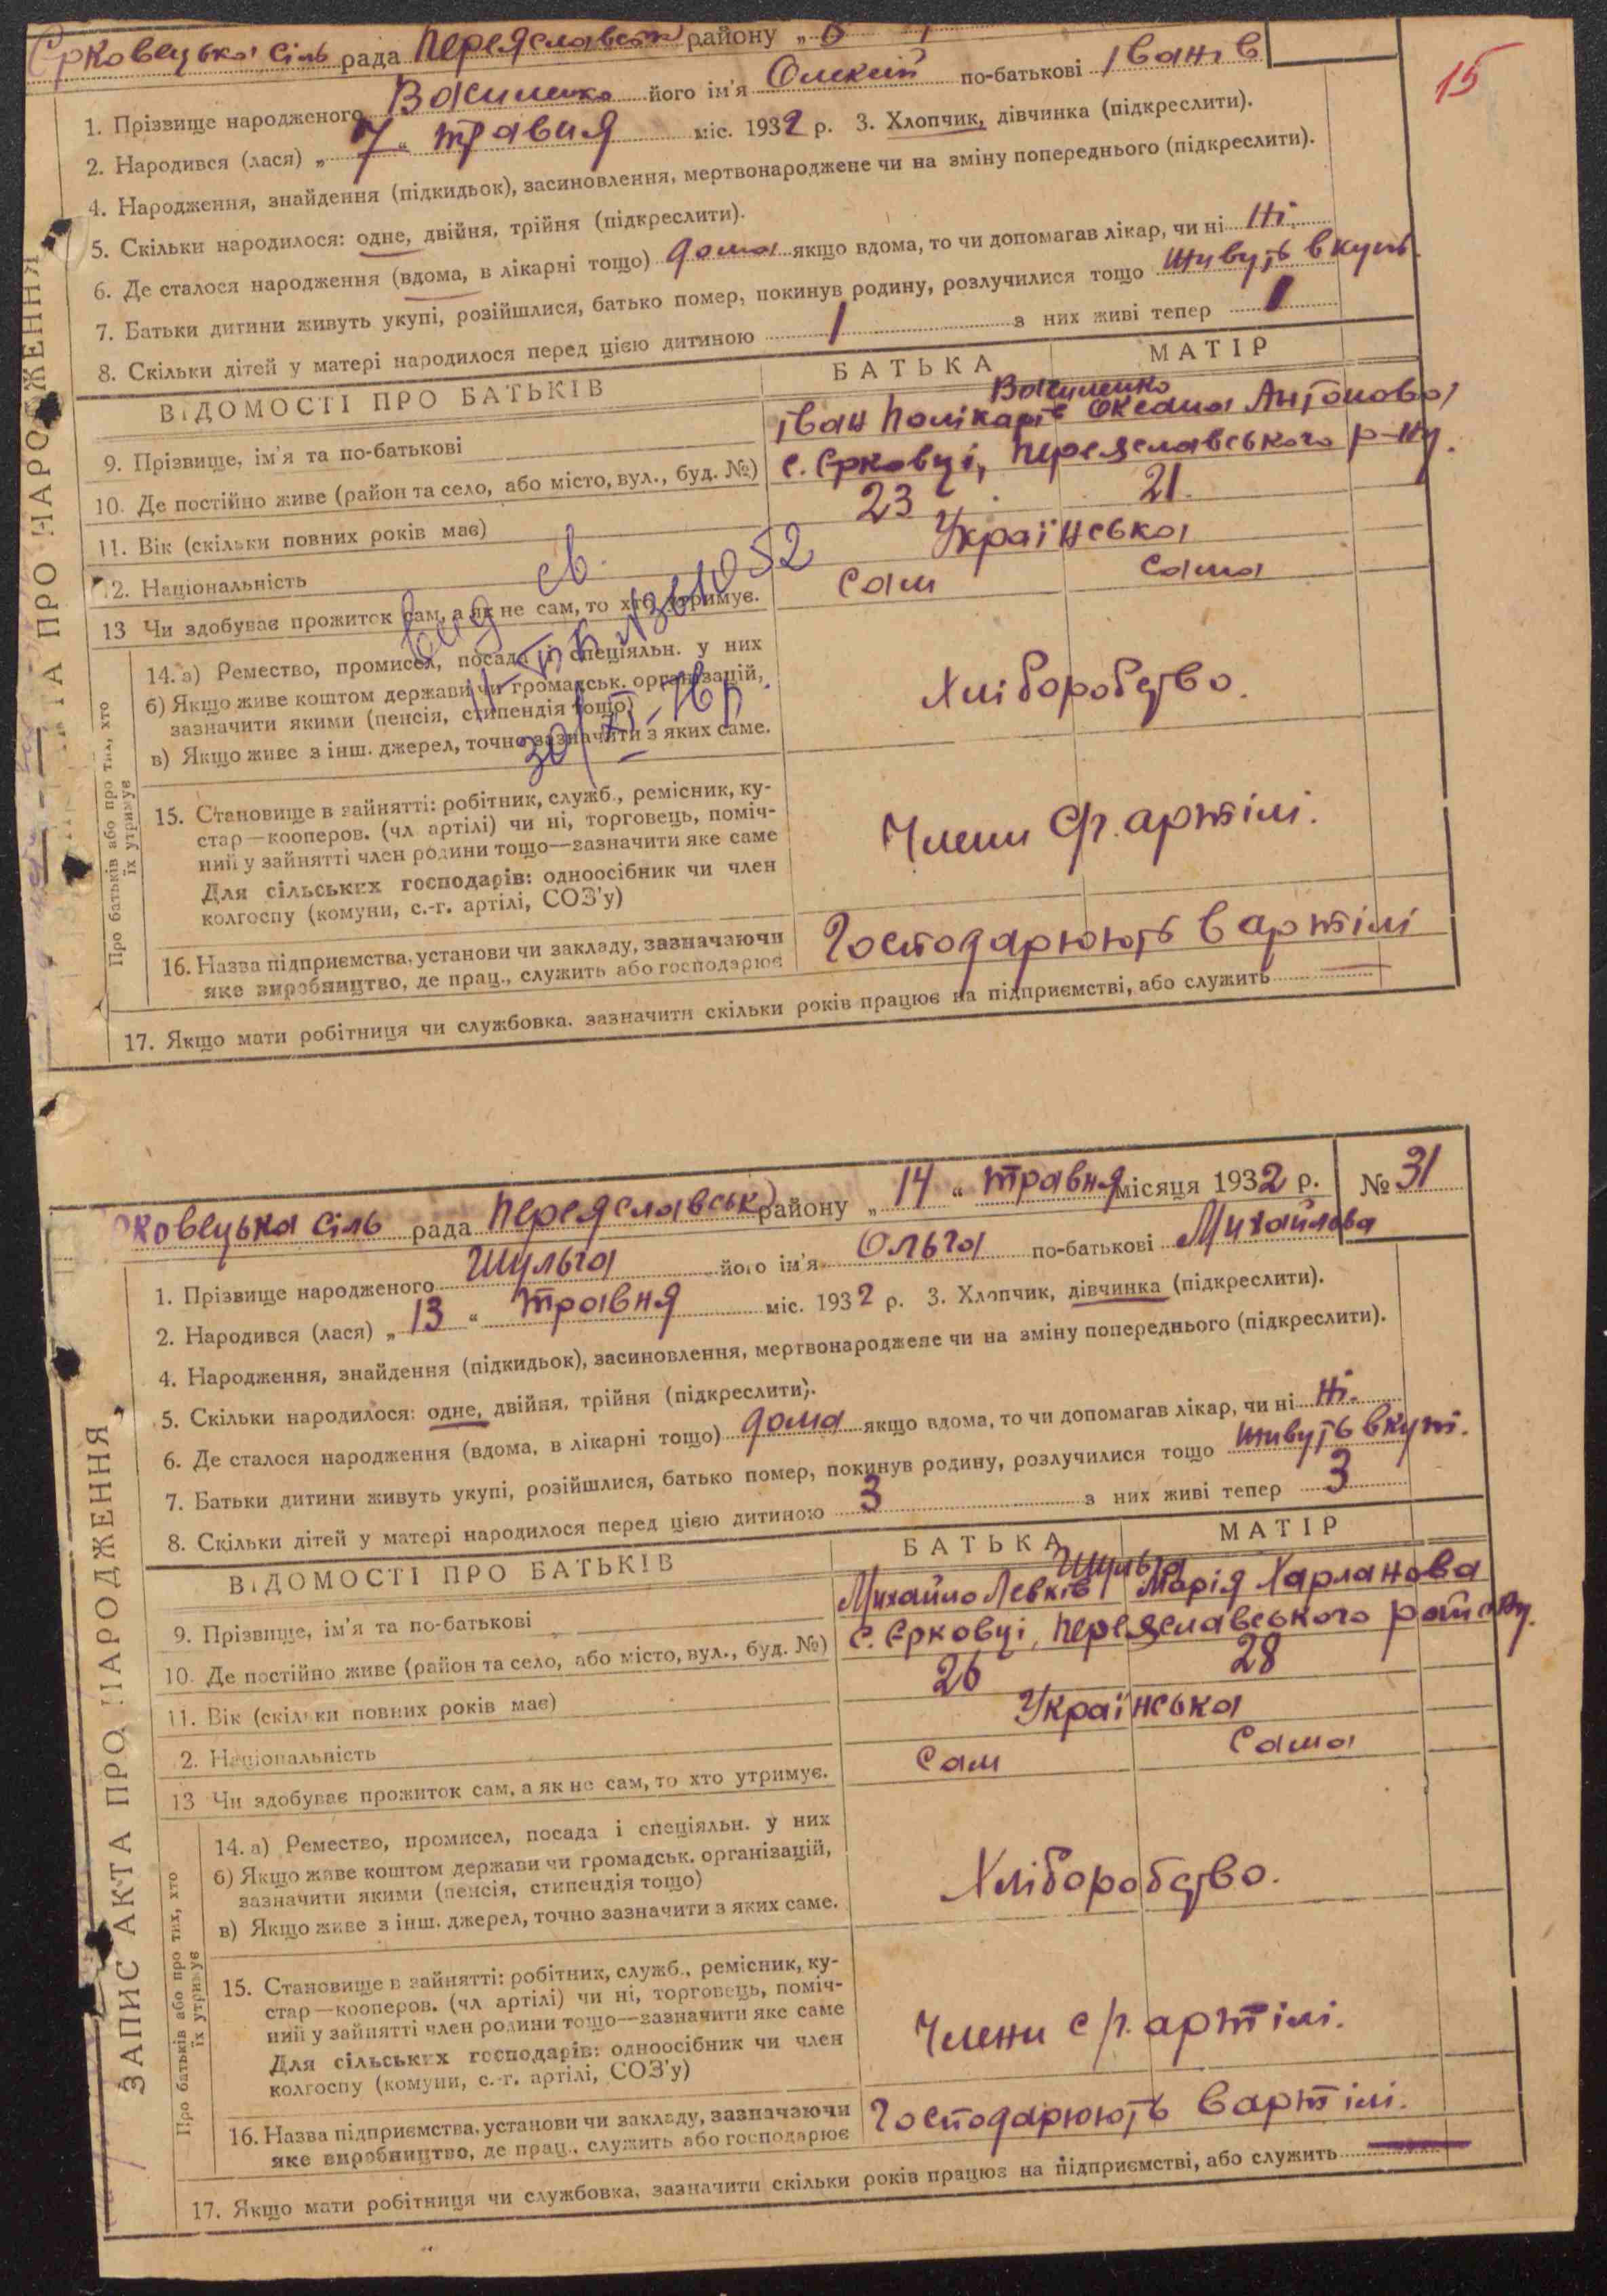 Єрковецька сіль рада Переяславськ району „
15
1. Прізвище народженого Василенко його ім'я Олексій по-батькові Іванів
2. Народився (лася) „ 7 “ травня міс. 1932 р. 3. Хлопчик, дівчинка (підкреслити).
4. Народження, знайдення (підкидьок), засиновлення, мертвонароджене чи на зміну попереднього (підкреслити).
5. Скільки народилося: одне, двійня, трійня (підкреслити).
6. Де сталося народження (вдома, в лікарні тощо) дома якщо вдома, то чи допомагав лікар, чи ні Ні.
7. Батьки дитини живуть укупі, розійшлися, батько помер, покинув родину, розлучилися тощо живуть вкупі.
8. Скільки дітей у матері народилося перед цією дитиною 1 з них живі тепер 1
ВІДОМОСТІ ПРО БАТЬКІВ БАТЬКА МАТІР
Василенко
9. Прізвище, ім'я та по-батькові Іван Полікарпів Оксана Антонова
10. Де постійно живе (район та село, або місто, вул., буд. №) с. Єрковці, Переяславського р-ну.
11. Вік (скільки повних років має) 23 21.
12. Національність Українська
13 Чи здобуває прожиток сам, а як не сам, то хто утримує. Сам Сама
Про батьків або про тих, хто їх утримує
14. а) Ремество, промисел, посада і спеціяльн. у них
б) Якщо живе коштом держави чи громадськ. організацій,
зазначити якими (пенсія, стипендія тощо) Хліборобство.
в) Якщо живе з інш. джерел, точно зазначити з яких саме.
15. Становище в зайнятті: робітник, служб., ремісник, ку-
стар—кооперов. (чл артілі) чи ні, торговець, поміч-
ний у зайнятті член родини тощо—зазначити яке саме Члени с/г. артілі.
Для сільських господарів: одноосібник чи член
колгоспу (комуни, с.-г. артілі, СОЗ'у)
16. Назва підприємства, установи чи закладу, зазначаючи Господарюють в артілі
яке виробництво, де прац., служить або господарює
17. Якщо мати робітниця чи службовка, зазначити скільки років працює на підприємстві, або служить
рковецька сіль рада Переяславськ району „ 14 “ травня місяця 1932 р. № 31
1. Прізвище народженого Шульга його ім'я Ольга по-батькові Михайлова
2. Народився (лася) „ 13 “ травня міс. 1932 р. 3. Хлопчик, дівчинка (підкреслити).
4. Народження, знайдення (підкидьок), засиновлення, мертвонароджене чи на зміну попереднього (підкреслити).
5. Скільки народилося: одне, двійня, трійня (підкреслити).
6. Де сталося народження (вдома, в лікарні тощо) дома якщо вдома, то чи допомагав лікар, чи ні Ні.
7. Батьки дитини живуть укупі, розійшлися, батько помер, покинув родину, розлучилися тощо живуть вкупі.
8. Скільки дітей у матері народилося перед цією дитиною 3 з них живі тепер 3
ВІДОМОСТІ ПРО БАТЬКІВ БАТЬКА МАТІР
Шульга
9. Прізвище, ім'я та по-батькові Михайло Левків Марія Харланова
10. Де постійно живе (район та село, або місто, вул., буд. №) с. Єрковці, Переяславського району.
11. Вік (скільки повних років має) 26 28
2. Національність Українська
13 Чи здобуває прожиток сам, а як не сам, то хто утримує. Сам Сама
ЗАПИС АКТА ПРО НАРОДЖЕННЯ
Про батьків або про тих, хто їх утримує
14. а) Ремество, промисел, посада і спеціяльн. у них
б) Якщо живе коштом держави чи громадськ. організацій,
зазначити якими (пенсія, стипендія тощо) Хліборобство.
в) Якщо живе з інш. джерел, точно зазначити з яких саме.
15. Становище в зайнятті: робітник, служб., ремісник, ку-
стар—кооперов. (чл артілі) чи ні, торговець, поміч-
ний у зайнятті член родини тощо—зазначити яке саме Члени с/г. артілі.
Для сільських господарів: одноосібник чи член
колгоспу (комуни, с.-г. артілі, СОЗ'у)
16. Назва підприємства, установи чи закладу, зазначаючи Господарюють в артілі.
яке виробництво, де прац., служить або господарює
17. Якщо мати робітниця чи службовка, зазначити скільки років працює на підприємстві, або служить